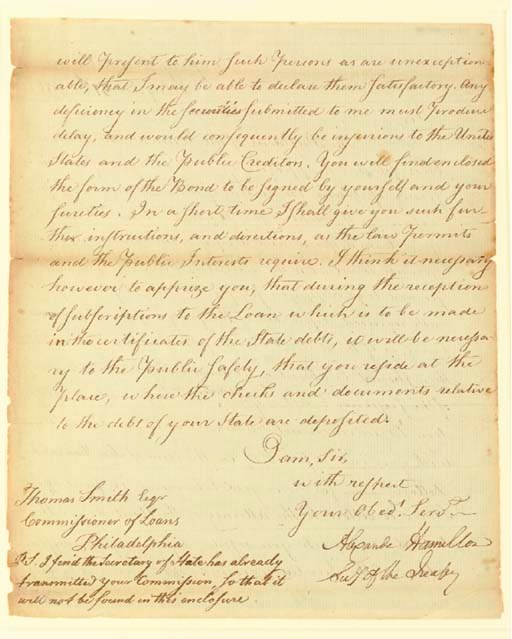 will present to him such Persons as are unexception-
able, that I may be able to declare them satisfactory. Any
deficiency in the securities submitted to me must produce
delay, and would consequently be injurious to the United
States and the Public Creditors. You will find enclosed
the form of the Bond to be signed by yourself and your
sureties. In a short time I shall give you such fur-
ther instructions, and directions, as the law Permits
and the Public Interests require. I think it necessary
however to apprize you, that during the reception
of subscriptions to the Loan which is to be made
in the certificates of the State debts, it will be necessa-
ry to the Public Safety, that you reside at the
Place, where the checks and documents relative
to the debt of your State are deposited.
I am, Sir,
with respect
Your Obedt. Servt.
Alexander Hamilton
Secy of the Treasy
Thomas Smith Esqr
Commissioner of Loans
Philadelphia
P.S. I find the Secretary of State has already
transmitted your Commission, so that it
will not be found in this enclosure